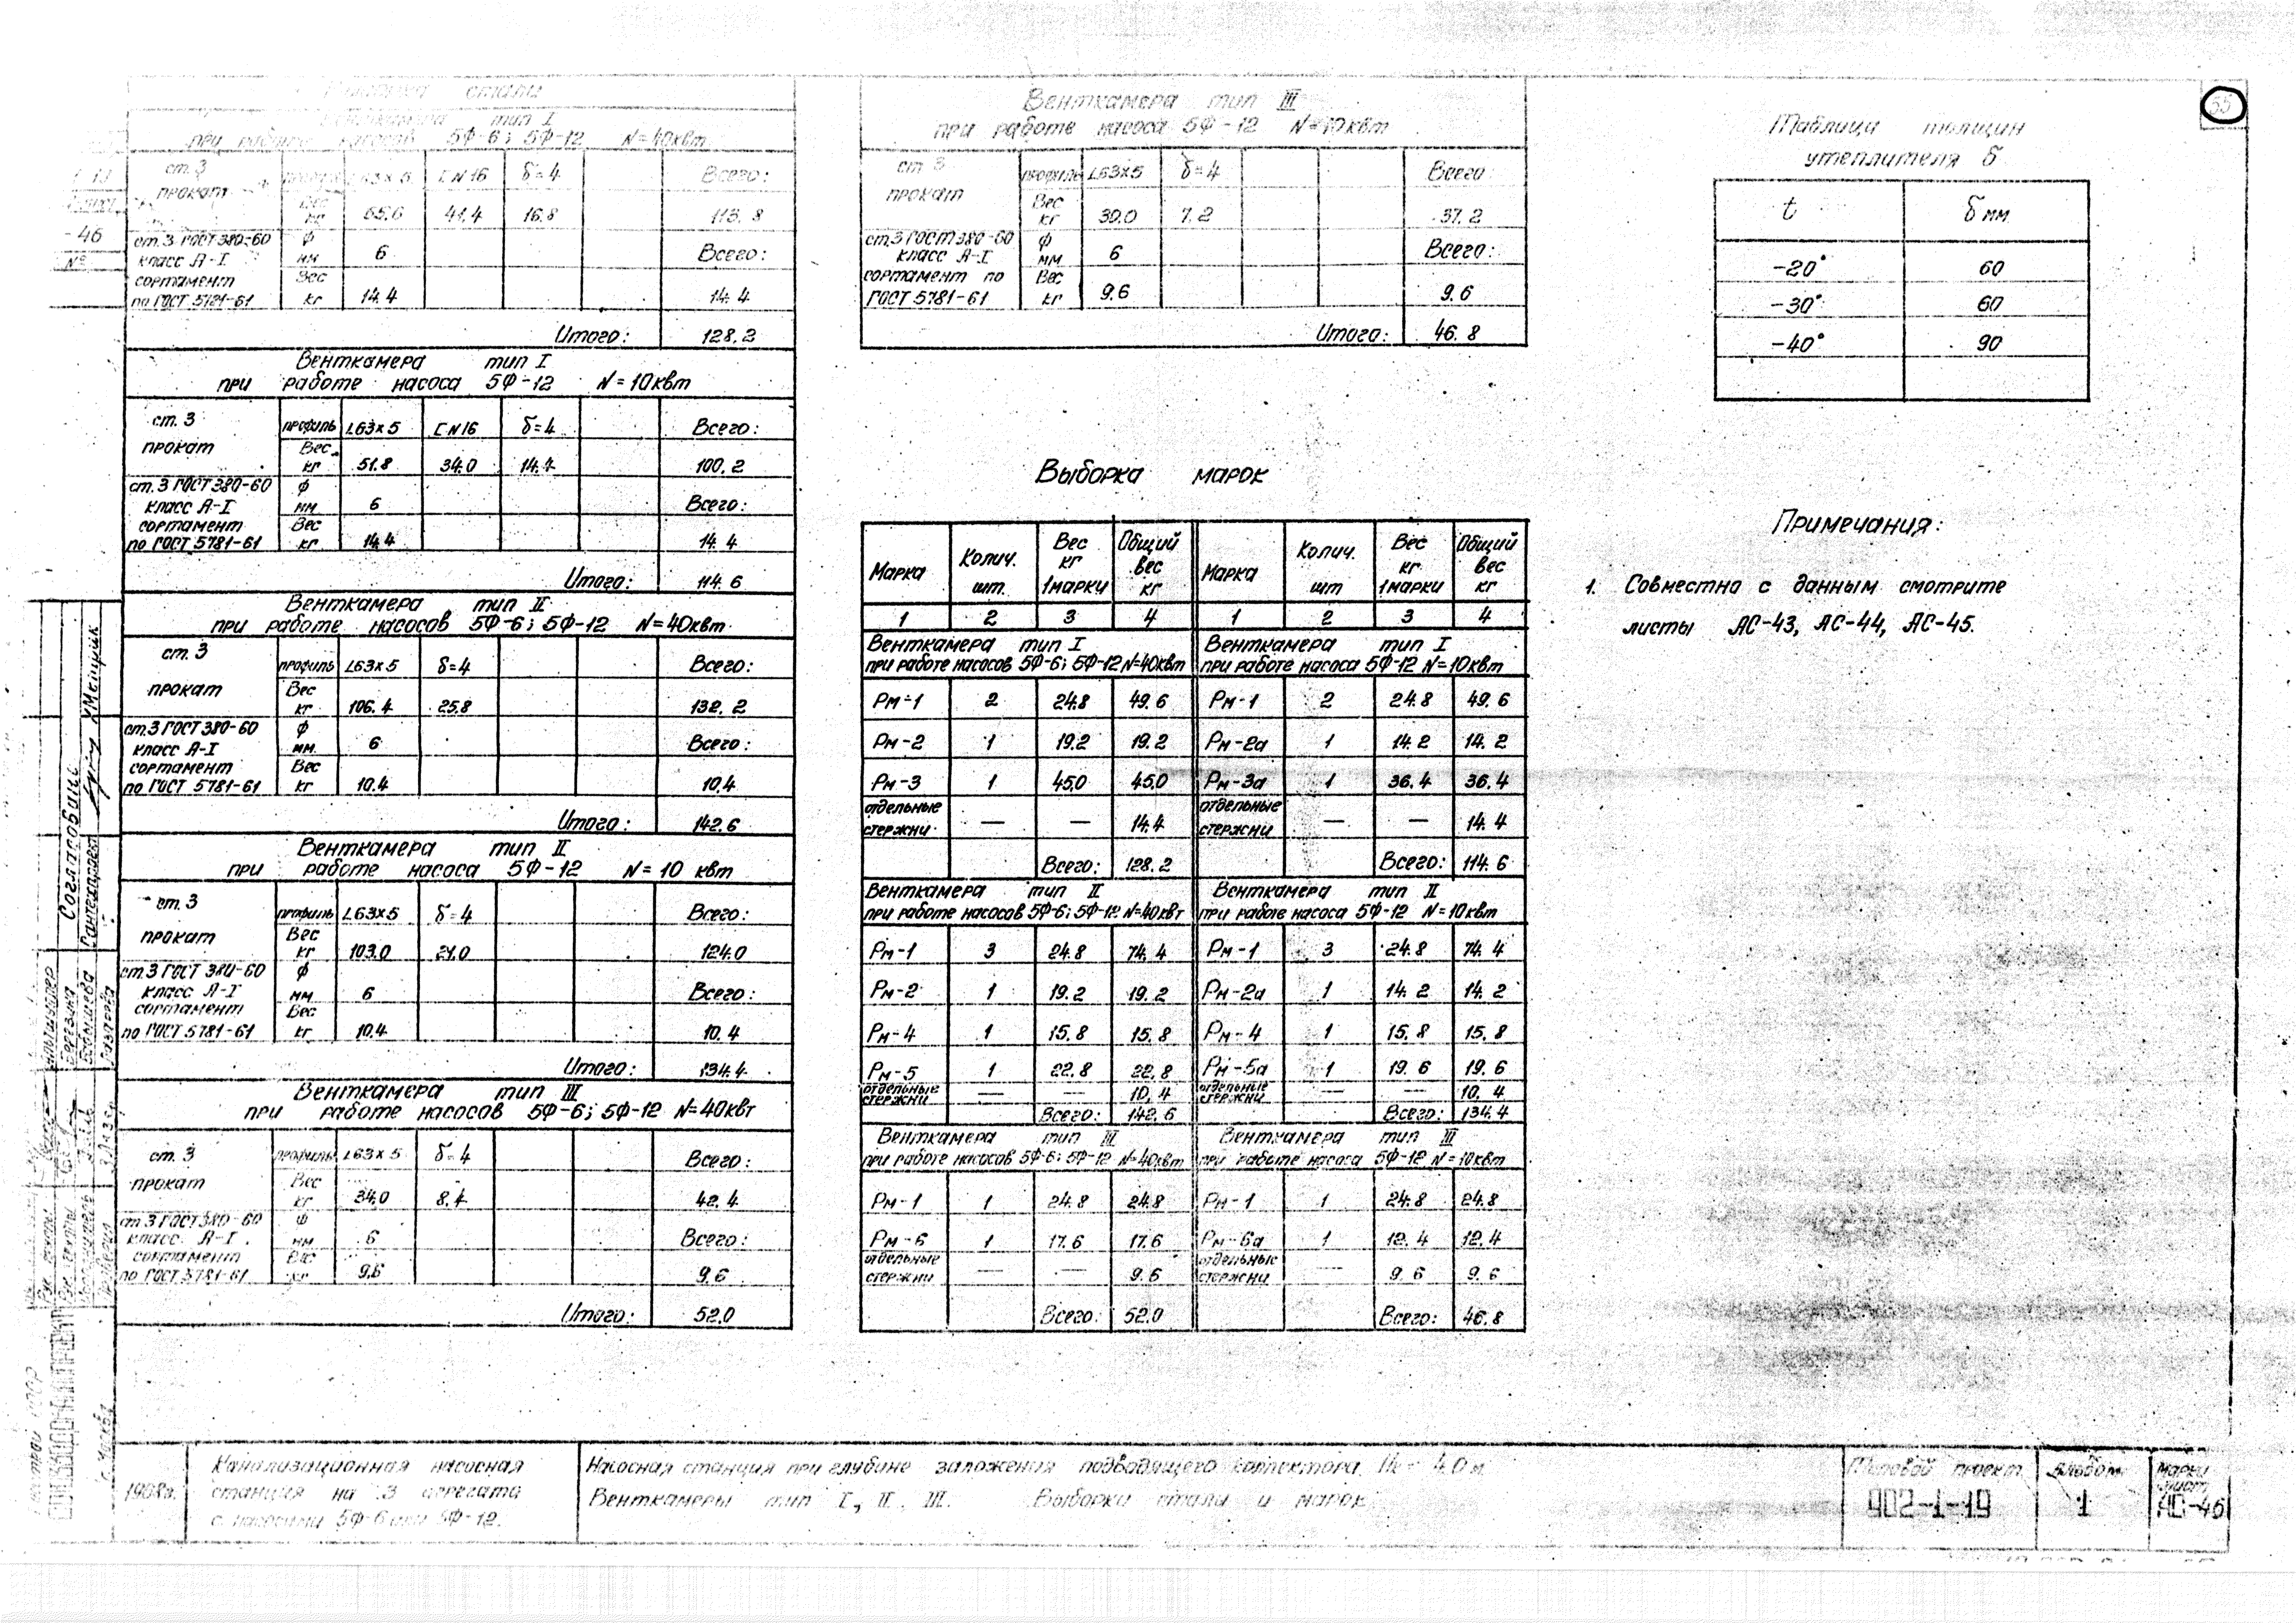 35
стали
тип I
при работе насосов 5Ф-6; 5Ф-12 N=40квт
ст.3 L63×5 [N16 δ=4 Всего:
прокат Вес кг 55.6 41.4 16.8 113.8
ст.3 ГОСТ 380-60 Ф
класс А-I мм 6 Всего:
сортамент Вес
по ГОСТ 5781-61 кг 14.4 14.4
Итого: 128.2
Венткамера тип I
при работе насоса 5Ф-12 N=10квт
ст.3 профиль L63×5 [N16 δ=4 Всего:
прокат Вес кг 51.8 34.0 14.4 100.2
ст.3 ГОСТ 380-60 Ф
класс А-I мм 6 Всего:
сортамент Вес
по ГОСТ 5781-61 кг 14.4 14.4
Итого: 114.6
Венткамера тип II
при работе насосов 5Ф-6; 5Ф-12 N=40квт
ст.3 профиль L63×5 δ=4 Всего:
прокат Вес кг 106.4 25.8 132.2
ст.3 ГОСТ 380-60 Ф
класс А-I мм 6 Всего:
сортамент Вес
по ГОСТ 5781-61 кг 10.4 10.4
Итого: 142.6
Венткамера тип II
при работе насоса 5Ф-12 N=10 квт
ст.3 профиль L63×5 δ=4 Всего:
прокат Вес кг 103.0 21.0 124.0
ст.3 ГОСТ 380-60 Ф
класс А-I мм 6 Всего:
сортамент Вес
по ГОСТ 5781-61 кг 10.4 10.4
Итого: 134.4
Венткамера тип III
при работе насосов 5Ф-6; 5Ф-12 N=40квт
ст.3 профиль L63×5 δ=4 Всего:
прокат Вес кг 34.0 8.4 42.4
ст.3 ГОСТ 380-60 Ф
класс А-I мм 6 Всего:
сортамент Вес
по ГОСТ 5781-61 кг 9.6 9.6
Итого: 52.0
Венткамера тип III
при работе насоса 5Ф-12 N=10квт
ст 3 профиль L63×5 δ=4 Всего
прокат Вес кг 30.0 7.2 37.2
ст.3 ГОСТ 380-60 Ф
класс А-I мм 6 Всего:
сортамент по Вес
ГОСТ 5781-61 кг 9.6 9.6
Итого: 46.8
Выборка марок
Марка Колич. шт. Вес кг 1марки Общий вес кг Марка Колич. шт Вес кг 1марки Общий вес кг
1 2 3 4 1 2 3 4
Венткамера тип I Венткамера тип I
при работе насосов 5Ф-6; 5Ф-12 N=40квт при работе насоса 5Ф-12 N=10квт
Рм-1 2 24.8 49.6 Рм-1 2 24.8 49.6
Рм-2 1 19.2 19.2 Рм-2а 1 14.2 14.2
Рм-3 1 45.0 45.0 Рм-3а 1 36.4 36.4
отдельные стержни — — 14.4 отдельные стержни — — 14.4
Всего: 128.2 Всего: 114.6
Венткамера тип II Венткамера тип II
при работе насосов 5Ф-6; 5Ф-12 N=40квт при работе насоса 5Ф-12 N=10квт
Рм-1 3 24.8 74.4 Рм-1 3 24.8 74.4
Рм-2 1 19.2 19.2 Рм-2а 1 14.2 14.2
Рм-4 1 15.8 15.8 Рм-4 1 15.8 15.8
Рм-5 1 22.8 22.8 Рм-5а 1 19.6 19.6
отдельные стержни — — 10.4 отдельные стержни — — 10.4
Всего: 142.6 Всего: 134.4
Венткамера тип III Венткамера тип III
при работе насосов 5Ф-6; 5Ф-12 N=40квт при работе насоса 5Ф-12 N=10квт
Рм-1 1 24.8 24.8 Рм-1 1 24.8 24.8
Рм-6 1 17.6 17.6 Рм-6а 1 12.4 12.4
отдельные стержни — — 9.6 отдельные стержни — 9.6 9.6
Всего: 52.0 Всего: 46.8
Таблица толщин
утеплителя δ
t δ мм
-20° 60
-30° 60
-40° 90
Примечания:
1. Совместно с данным смотрите
листы АС-43, АС-44, АС-45.
Согласовано
1968г.
Канализационная насосная
станция на 3 агрегата
с насосами 5Ф-6 или 5Ф-12.
Насосная станция при глубине заложения подводящего коллектора Нк=4.0м
Венткамеры тип I, II, III. Выборки стали и марок.
Типовой проект
902-1-19
Альбом
1
Марка
лист
АС-46
г. Москва